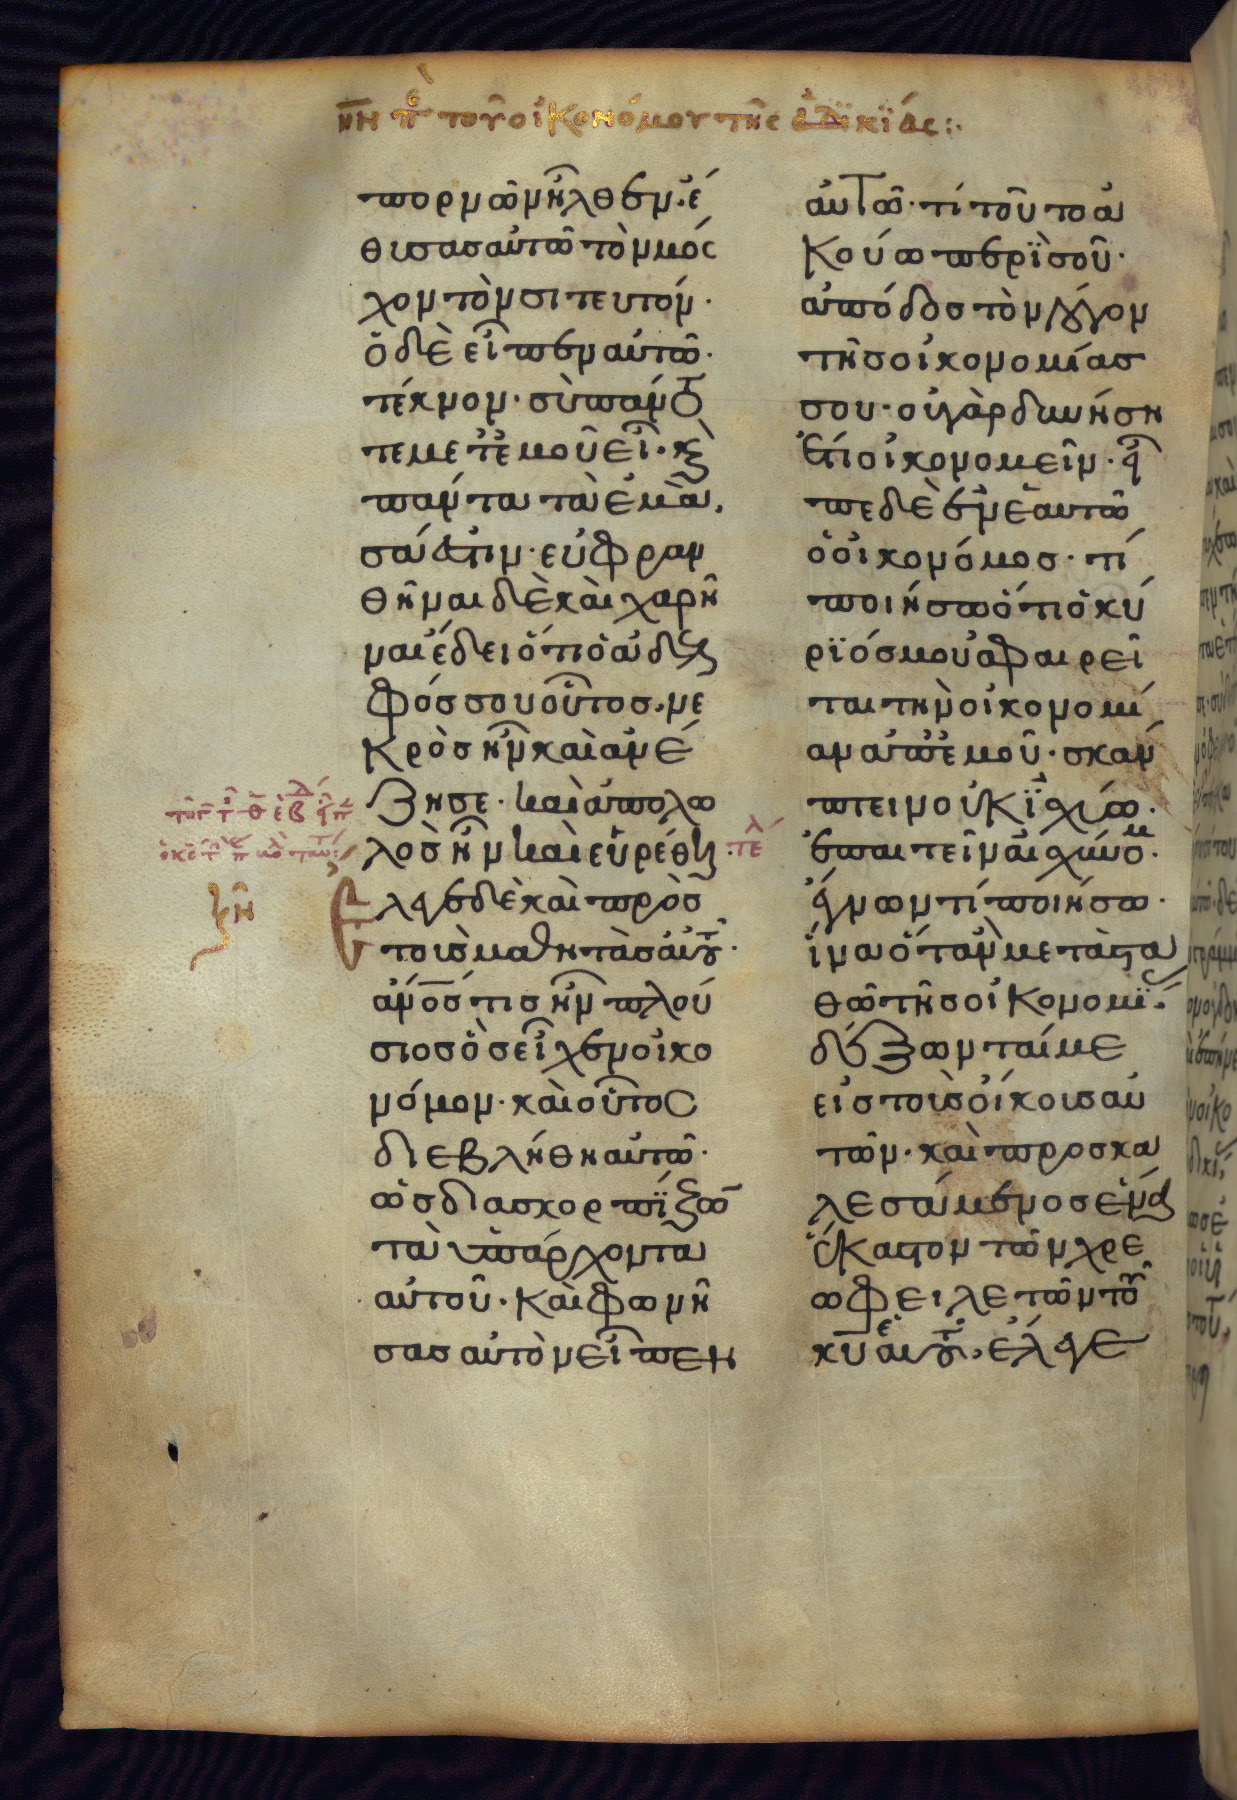 νη π̅ε̅ τοῦ οἰκονόμου τῆς ἀδικΐας:·
πορνῶν ἦλθεν· έ
θυσας αὐτῶ τὸν μόσ
χον τὸν σιτευτόν·
ὁ δὲ εἶπεν αὐτῶ·
τέκνον· σὺ πάντο
τε μετ ἐμοῦ εἶ· κ(αὶ)
πάντα τὰ ἐμὰ,
σά ἐστιν· εὐφραν
θῆναι δὲ καὶ χαρῆ
ναι ἔδει ὅτι ὁ ἀδελ
φός σου οὗτος, νε
κρὸς ἦν καὶ ἀνέ
ζησε· καὶ ἀπολω
λὸς ἦν καὶ εὑρέθη· τέλ
Ἔλεγε δὲ καὶ πρὸς
τοὺς μαθητὰς αὐτοῦ·
ἄνος τις ἦν πλού
σιος ὃς εἶχεν οἰκο
νόμον· καὶ οὗτος
διεβλήθη αὐτῶ·
ὡς διασκορπΐζων
τὰ ὑπάρχοντα
αὐτοῦ· καὶ φωνή
σας αὐτὸν εἶπεν
αὐτῶ· τί τοῦτο ἀ
κούω περὶ σοῦ·
ἀπόδος τὸν λόγον
τῆς οἰκονομίας
σου· οὐ γὰρ δυνήση
ἔτι οἰκονομεῖν· εἶ
πε δὲ ἐν ἑαυτῶ
ὁ οἰκονόμος· τί
ποιήσω ὅτι ὁ κύ
ρϊός μου ἀφαιρεῖ
ται τὴν οἰκονομί
αν ἀπ ἐμοῦ· σκάπ
πτειν οὐκ ϊσχύω·
ἐπαιτεῖν αἰσχύνομ·
ἔγνων τί ποιήσω·
ἵνα ὅταν μεταστα
θῶ τῆς οἰκονομΐας
δέξωνταί με
εἰς τοὺς οἴκους αὐ
τῶν· καὶ προσκα
λεσάμενος ἕνα
ἕκαστον τῶν χρε
ωφειλετῶν τοῦ
κυ̅ ἑαυτοῦ, ἔλεγε